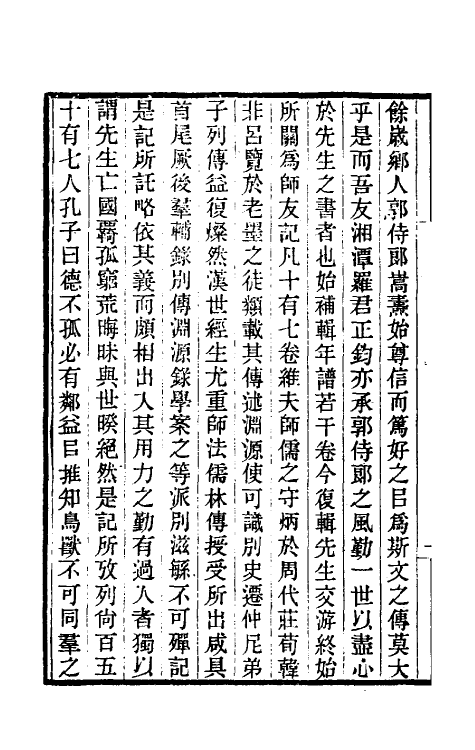 餘歲鄉人郭侍郎嵩燾始尊信而篤好之㠯爲斯文之傳莫大
乎是而吾友湘潭羅君正鈞亦承郭侍郎之風勤一世以盡心
於先生之書者也始補輯年譜若干卷今復輯先生交游終始
所關爲師友記凡十有七卷維夫師儒之守炳於周代莊荀韓
非呂覽於老墨之徒頗載其傳述淵源使可識別史遷仲尼弟
子列傳益復燦然漢世經生尤重師法儒林傳授受所出咸具
首尾厥後羣輔錄別傳淵源錄學案之等派別滋緐不可殫記
是記所託略依其義而頗相出入其用力之勤有過人者獨以
謂先生亡國羇孤竄荒晦昧與世暌絕然是記所攷列尙百五
十有七人孔子曰德不孤必有鄰益㠯推知鳥獸不可同羣之